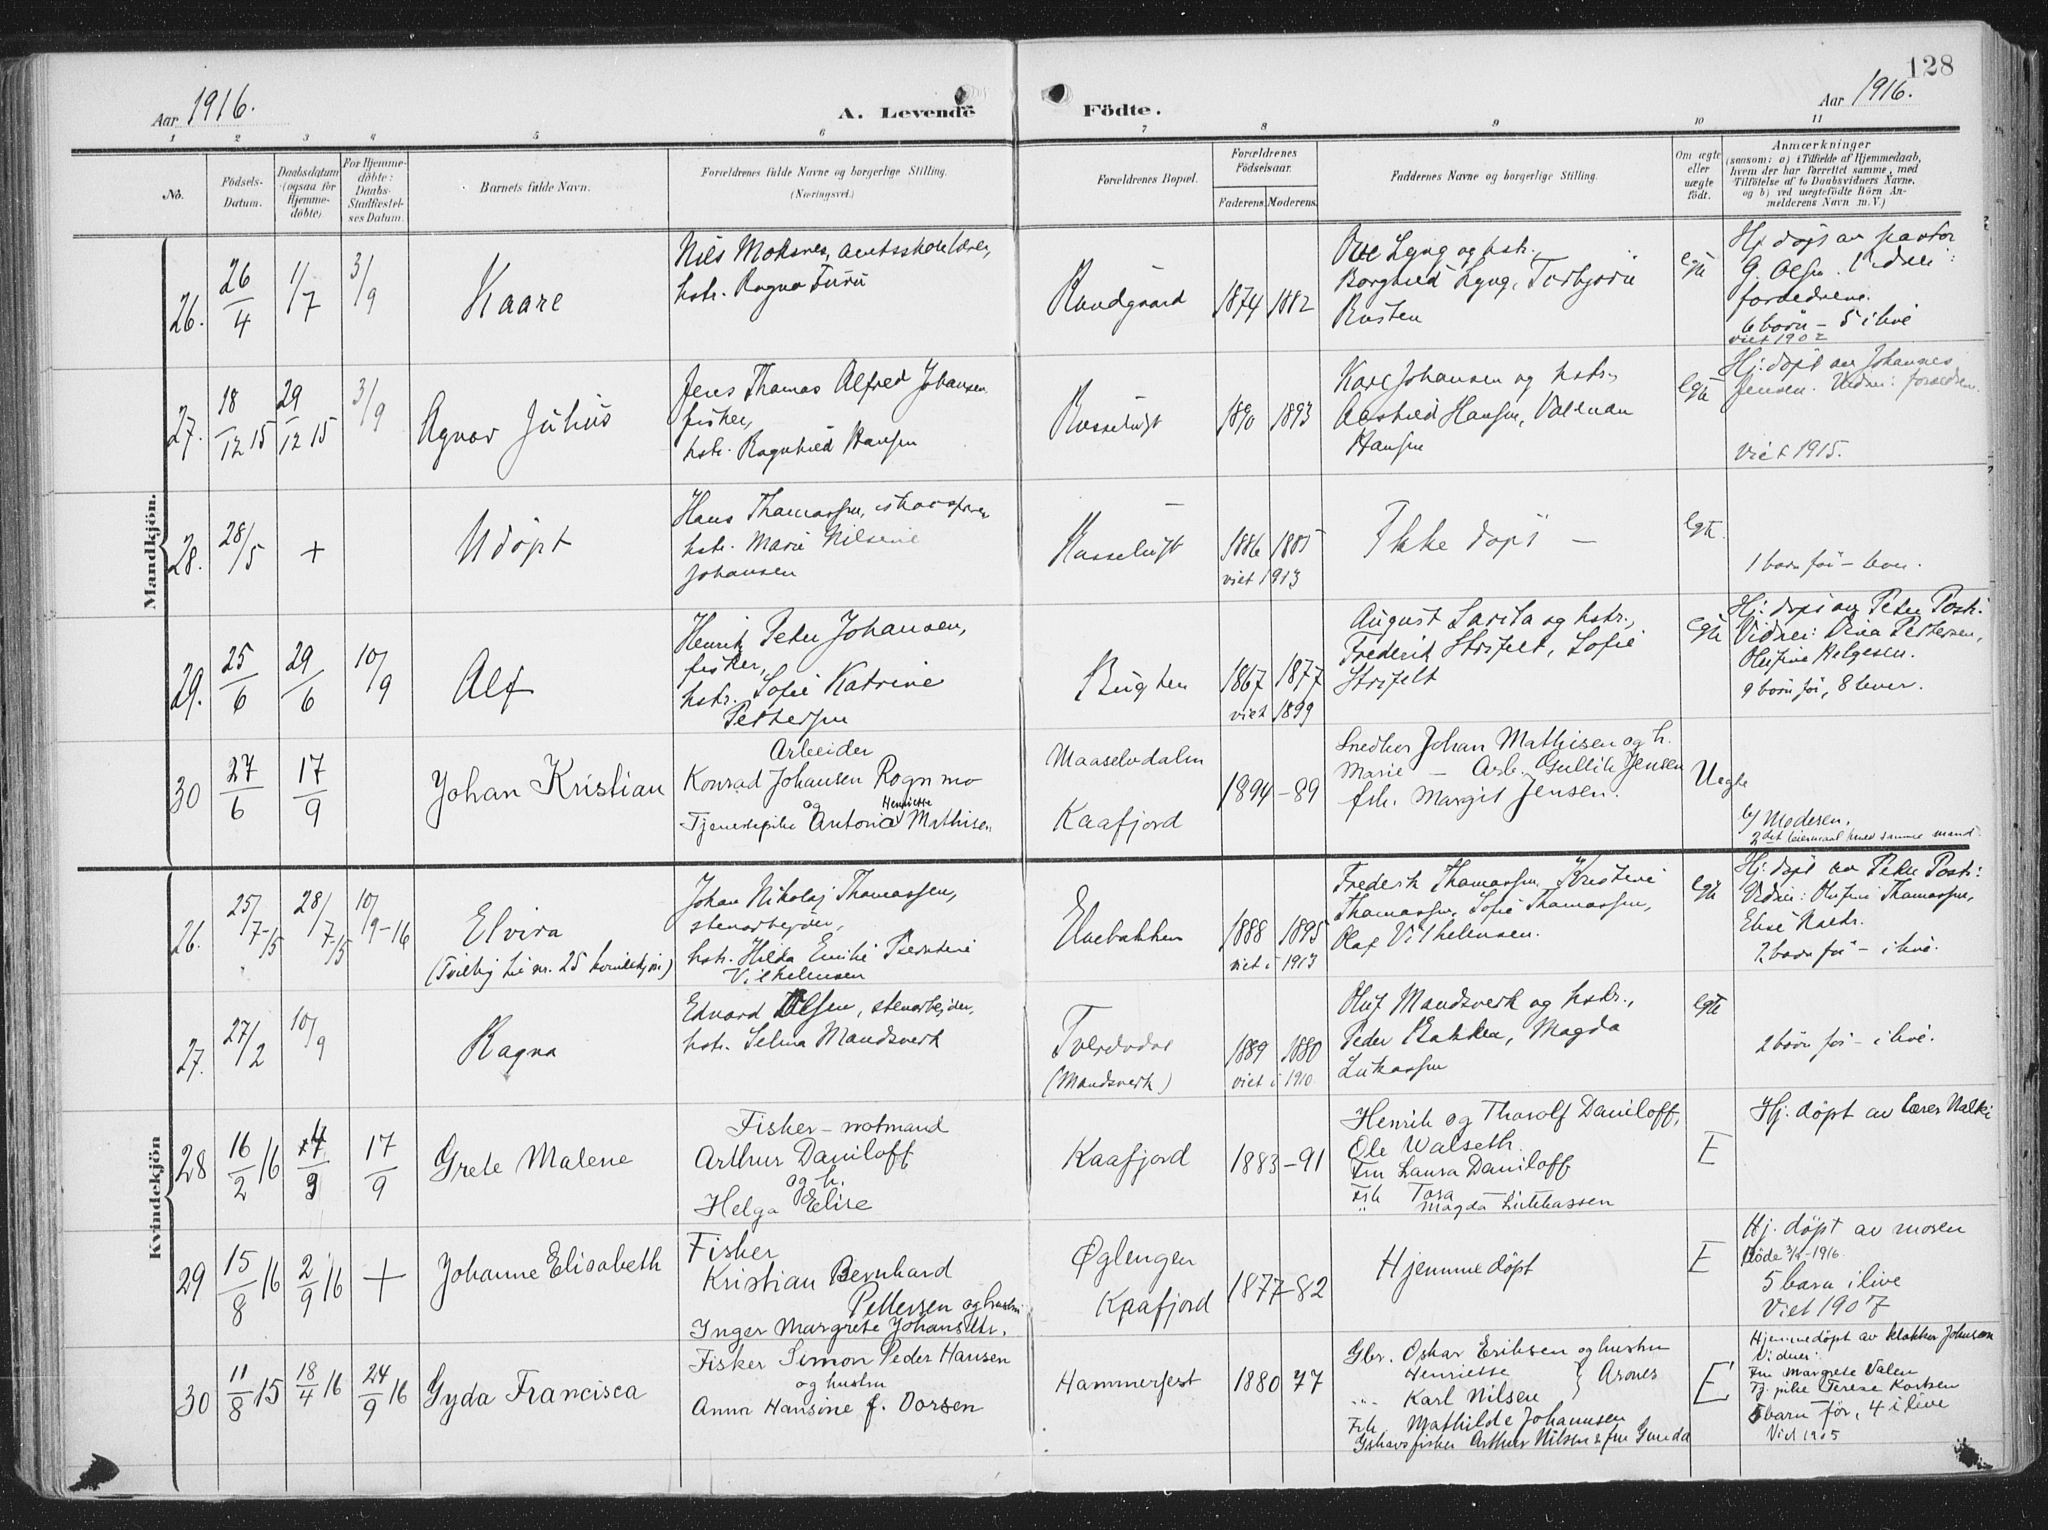 128
Aar 1916.
A. Levende Födte.
Aar 1916.
1 2 3 4 5 6 7 8 9 10 11
No.
Födsels-
Datum.
Daabsdatum
(ogsaa for
Hjemme-
döbte).
For Hjemme-
döbte:
Daabs-
Stadfæstel-
ses Datum.
Barnets fulde Navn.
Forældrenes fulde Navne og borgerlige Stilling.
(Næringsvei.)
Forældrenes Bopæl.
Forældrenes
Födselsaar.
Faderens. Moderens.
Faddernes Navne og borgerlige Stilling.
Om ægte
eller
uægte
födt.
Anmærkninger
(saasom: a) i Tilfælde af Hjemmedaab,
hvem der har forrettet samme, med
Tilföielse af to Daabsvidners Navne,
og b) ved uægtefödte Börn An-
melderens Navn m. V.)
Mandkjön.
26. 26/4 1/7 3/9
Kaare
Nils Moksnes, amtsskolelærer,
hstr. Ragna Furu
Rundgaard
1874 1882
Ove Lyng og hstr.,
Borghild Lyng, Torbjørn
Rusten
egte
Hj. døpt av pastor
G. Olsen. Vidner:
forældrene.
6 børn – 5 i live
viet 1902
27. 18/12 15 29/12 15 3/9
Agnar Julius
Jens Thomas Alfred Johansen
fisker,
hstr. Ragnhild Hansen
Russeluft
1890 1893
Kare Johansen og hstr,
Aashild Hansen, Valdemar
Hansen
egte
Hj. døpt av Johannes
Jensen. Vidner: forældrene.
viet 1915.
28. 28/5 +
Udøpt
Hans Thomassen,
hstr. Marie Nilsine
Johansen
Russeluft
1886 1885
viet 1913
Ikke døpt –
egte.
1 barn før – lever.
29. 25/6 29/6 10/9
Alf
Henrik Peter Johansen,
fisker,
hstr. Sofie Katrine
Pettersen
Bugten
1867 1877
viet 1899
August Sarila og hstr.,
Frederik Strifelt, Sofie
Strifelt
egte
Hj. døpt av Peter Post.
Vidner: Dina Pettersen,
Olufine Helgesen.
9 børn før, 8 lever.
30 27/6 17/9
Johan Kristian
Arbeider
Konrad Johansen Rognmo
og Henriette
Tjenestepike Antonie Mathisen
Maaselvdalen
Kaafjord
1894 – 89
Snedker Johan Mathisen og h.
Marie – Arb. Gullik Jensen
frk. Margit Jensen.
Uegte
b/ Moderen.
2det leiermaal med samme mand
Kvindekjön
26. 25/7-15 28/7-15 10/9-16
Elvira
(Tvilling til nr. 25 kvindekjøn)
Johan Nikolaj Thomassen,
stenarbejder,
hstr. Hilda Emilie Berntine
Vilhelmsen
Elvebakken
1888 1895
viet i 1913
Frederik Thomassen, Kristine
Thomassen, Sofie Thomassen,
Olaf Vilhelmsen.
egte
Hj. døpt av Peter Post:
Vidner: Olufine Thomassen,
Elise
2 børn før – i live.
27. 27/2 10/9
Ragna
Edvard Olsen, stenarbejder,
hstr. Selma Mandsverk
Tverdvdal
(Mandsverk)
1889 1880
viet i 1910
Oluf Mandsverk og hstr.,
Peder Bakken, Magda
Lukassen
egte
2 børn før – i live.
28 16/2 16 4/3 17/9
Grete Malene
Fisker – notmand
Arthur Daniloff
og h.
Helga Elise
Kaafjord
1883 – 91
Henrik og Tharolf Daniloff,
Ole Walseth
Fru Laura Daniloff
Frk Tora
„ Magda Lukkassen
E
Hj. døpt av lærer Nalki
29 15/8 16 2/9 16 +
Johanne Elisabeth
Fisker
Kristian Bernhard
Pettersen og hustru
Inger Margrete Johansdtr.
Øglengen
Kaafjord
1877 – 82
Hjemmedøpt
E
Hj. døpt av moren
Døde 3/9 – 1916.
5 barn i live
Viet 1907
30 11/8 15 18/4 16 24/9 16
Gyda Francisca
Fisker Simon Peder Hansen
og hustru
Anna Hansine f. Dorsen
Hammerfest
1880 77
Gbr. Oskar Eriksen og hustru
Henriette } Arones
„ Karl Nilsen
Frk. Mathilde Johannsen
Gshavsfisker Arthur Nilsen & fru Gunda
E
Hjemmedøpt av klokker Johnsen
Vidner:
Fru Margrete Valen
Tj. pike Terese Karlsen
5 barn før, 4 i live
Viet 1905